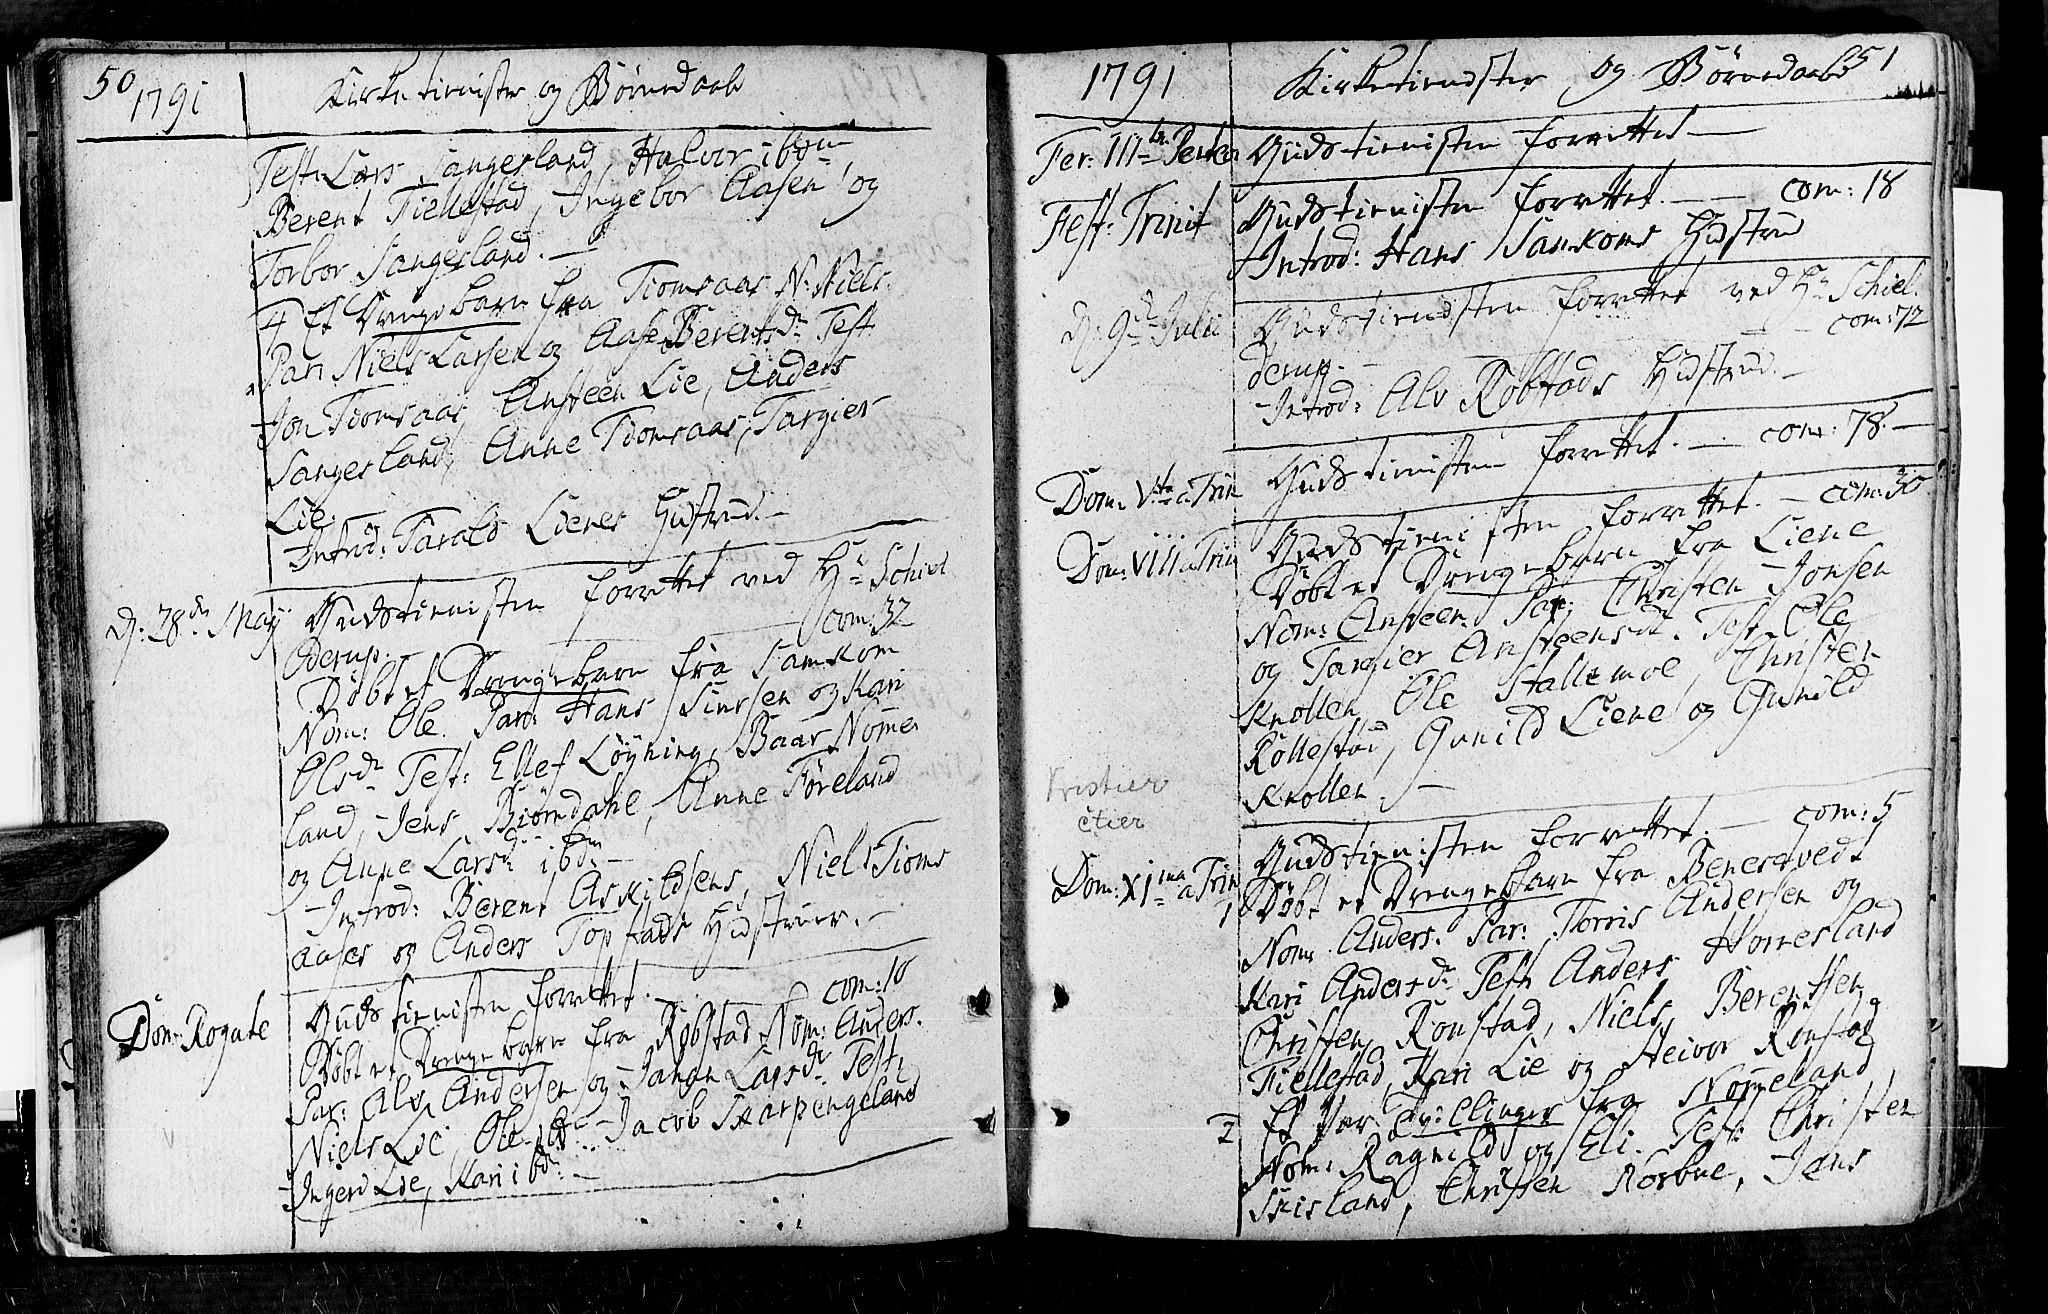 50
1791
Kirketienister og Børnedaab
Test: Lars Sangesland, Halvor ibdm
Berent Fiellestad, Ingebor Aasen, og
Torbor Sangesland.
4 Et Drengebarn fra Tiomsaas N: Niels.
Par: Niels Larsen og Aase Berentsdr Test
Jon Tiomsaas, Ansteen Lie, Anders
Sangesland, Anne Tiomsaas, Targier
Lie.
Introd: Tarald Lienes Hustrud.
D: 28de May
Gudstienisten forrettet ved Hr Schiel
derup. com: 32
Døbt et Drengebarn fra Samkom
Nom: Ole. Par: Hans Sivrsen og Kari
Olsdr Test: Ellef Løyning, Baar Nome
land, Jens Biørndahl, Anne Føreland
og Anne Larsdr ibdm
Introd: Berent Askildsens, Niels Tioms
aases og Anders Topstads Hustruer.
Dom: Rogate
Gudstienisten forrettet. com: 10
Døbt et Drengebarn fra Røbstad Nom: Anders.
Par: Alv Andersen og Larsdr Test:
Niels Lie, Ole ibdm Jacob Skarpengeland
Ingerd Lie, Kari ibdm
1791
Kirketienister og Børnedaab
51
Fer: III Pentec
Gudstienisten forrettet
Fest: Trinit
Gudstienisten forrettet. com: 18
Introd: Hans Samkoms Hustrud
D: 9de Julii
Gudstienisten forrettet ved Hr Schiel
derup. com: 72
Introd: Alv Røbstads Hustrud.
Dom: Vta a Trin
Gudstienisten forrettet. com: 78.
Dom: VIII a Trin
Gudstienisten forrettet. com: 30
Døbt et Drengebarn fra Liene
Nom: Ansteen. Par: Christen Jonsen
og Targier Ansteensdr. Test: Ole
Knollen, Ole Stallemoe, Christen
Røllestad, Gunild Liene og Gunild
Knollen.
Kristier
etier
Dom: XIma a Trin
Gudstienisten forrettet. com: 5
1 Døbt et Drengebarn fra Benestvedt
Nom: Anders. Par: Torris Andersen og
Kari Andersdr Test: Anders Homesland
Christen Ronstad, Niels Berentsen
Fiellestad, Kari Lie og Heivor Ronstad
2 Et Par Tvillinger fra Nomeland
Nom: Ragnild og Eli. Test: Christen
Skisland, Christen Røsbue, Jens